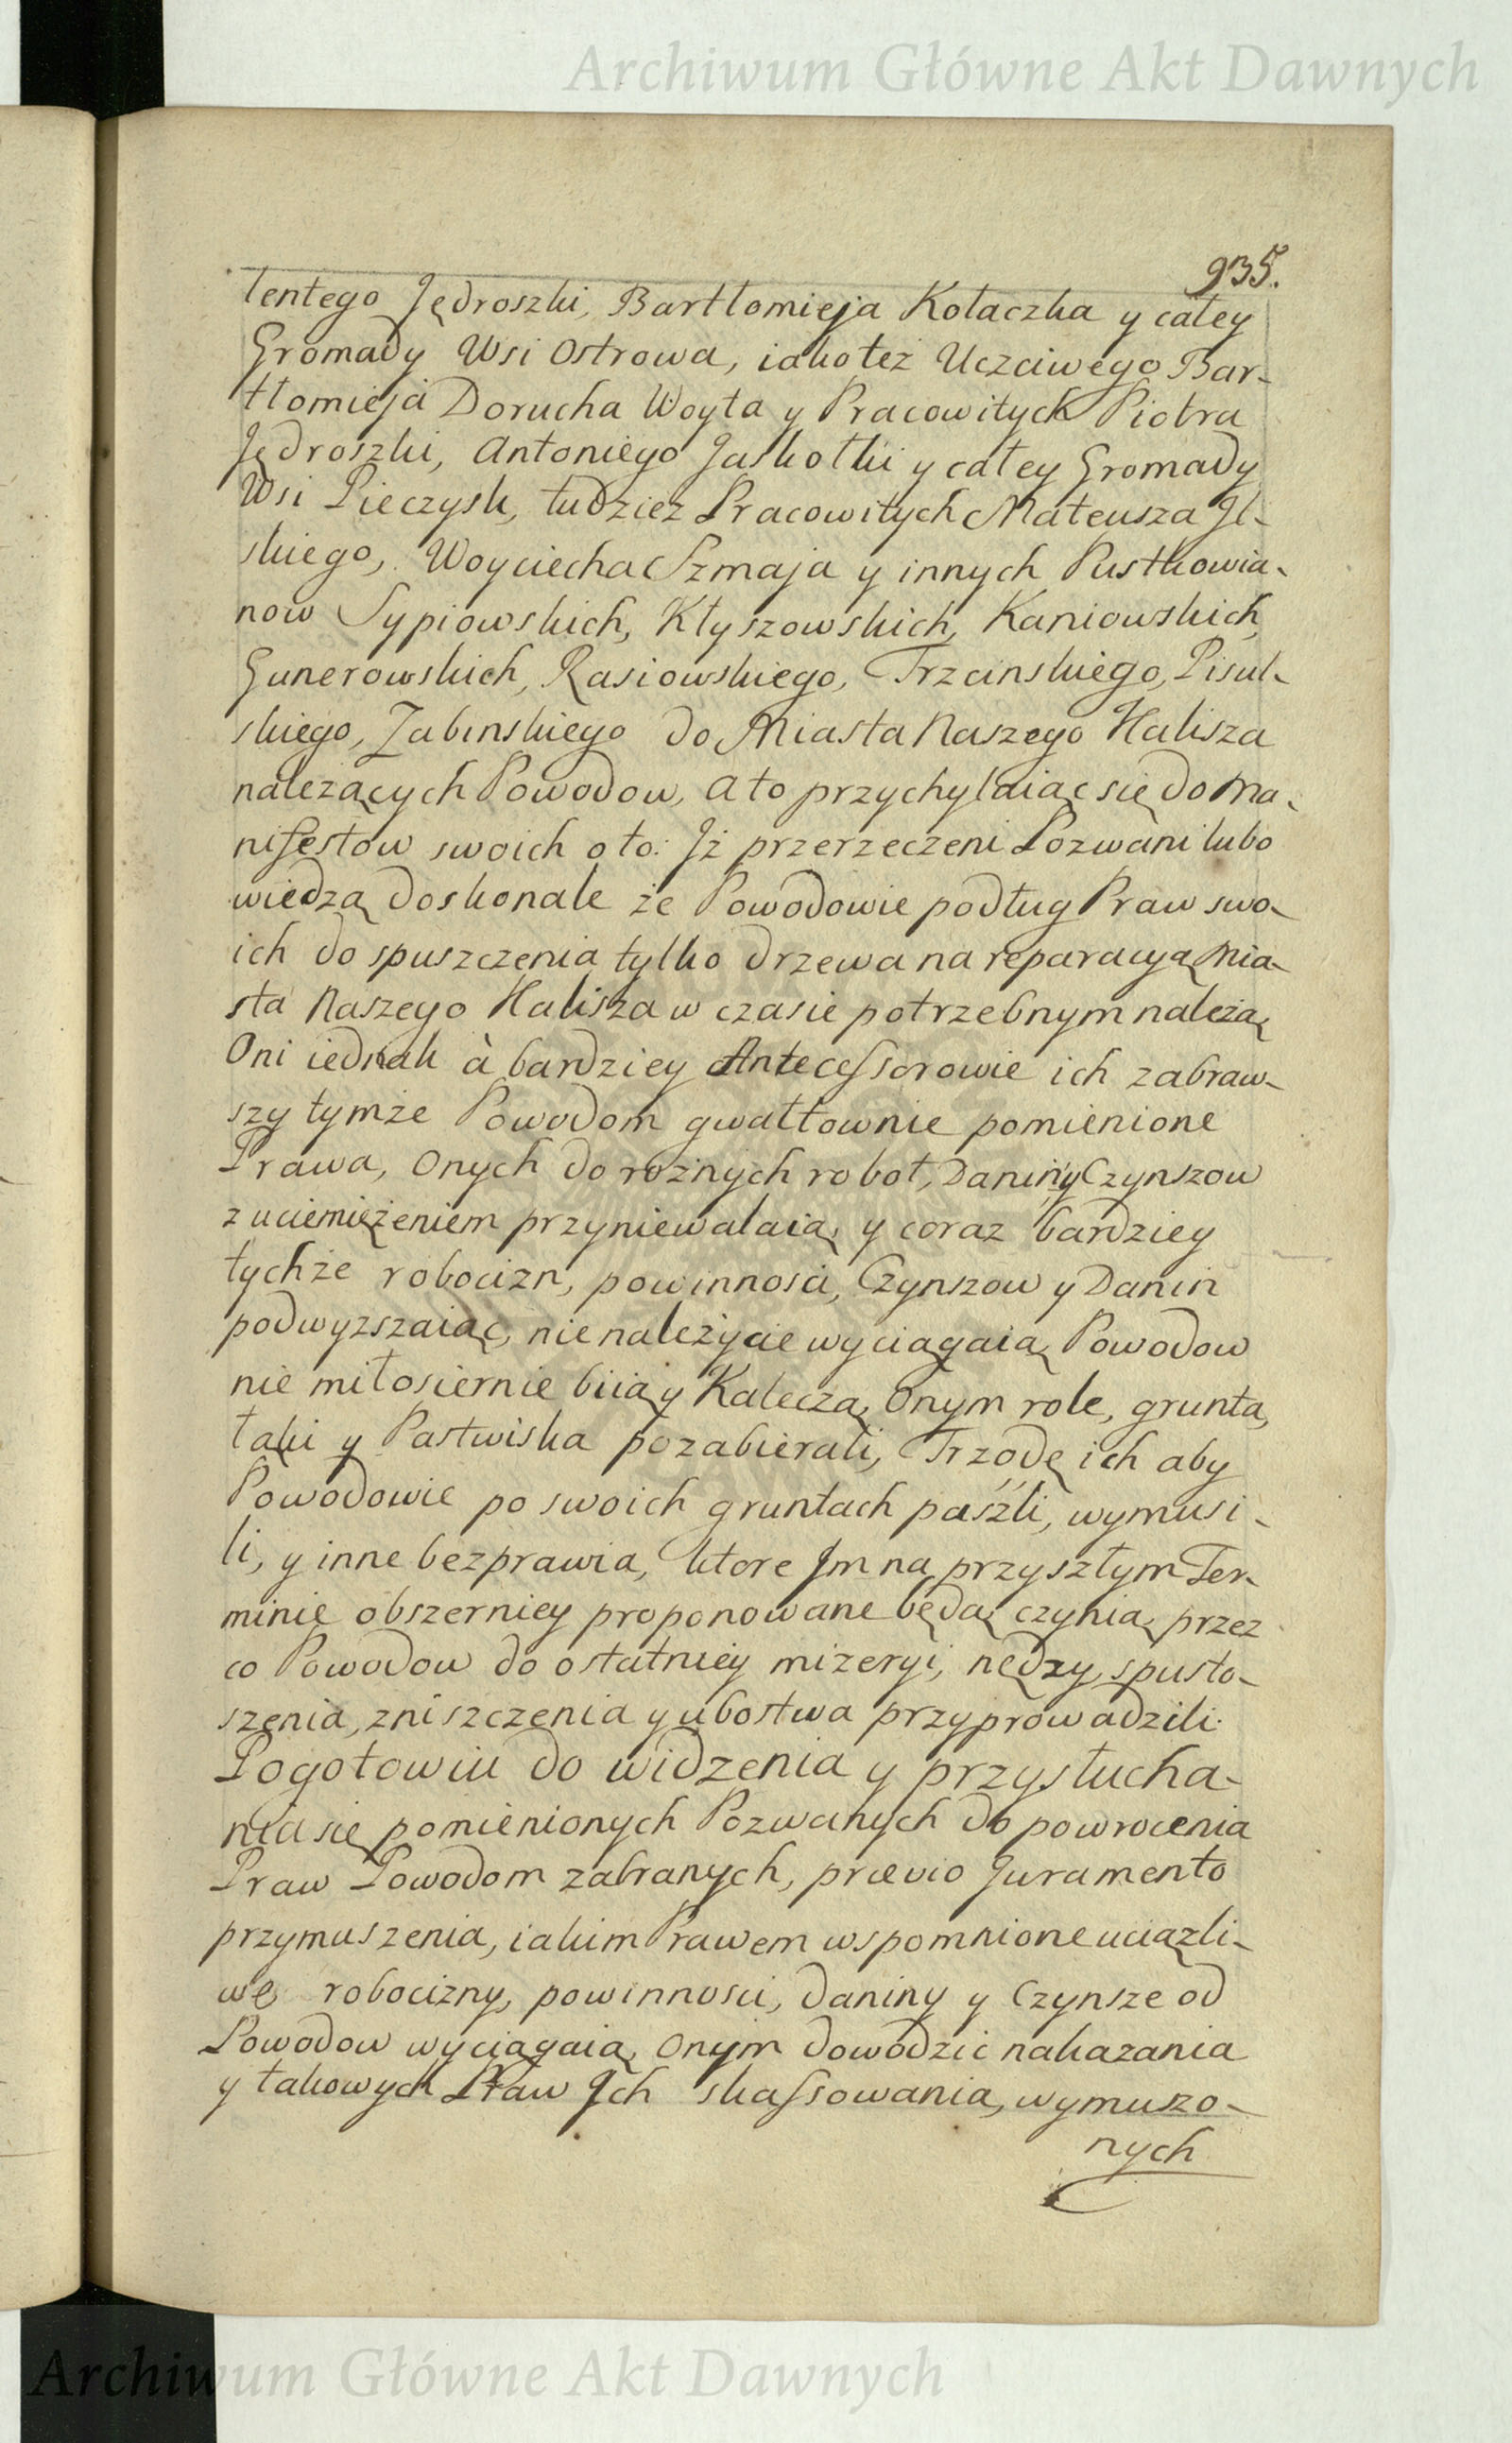 Archiwum Główne Akt Dawnych
935.
lentego Jędroszki, Bartłomieja Kołaczka y całey
Gromady Wsi Ostrowa, iako też Uczciwego Bar-
tłomieja Dorucha Woyta y Pracowitych Piotra
Jędroszki, Antoniego Jaskołki y całey Gromady
Wsi Pieczysk, tudziez Pracowitych Mateusza Jl-
skiego, Woyciecha Szmaja y innych Pustkowia-
now Sypiowskich, Kłyszowskich, Kaniowskich,
Gunerowskich, Rasiowskiego, Trzcinskiego, Pisul-
skiego, Zabinskiego do Miasta Naszego Kalisza
należących Powodow, a to przychylaiąc się do Ma-
nifestow swoich o to: Jż przerzeczeni Pozwani lubo
wiedzą doskonale że Powodowie podług Praw swo-
ich do spuszczenia tylko drzewa na reparacyą Mia-
sta Naszego Kalisza w czasie potrzebnym należą
Oni iednak à bardziey Antecessorowie ich zabraw-
szy tymże Powodom gwałtownie pomienione
Prawa, Onych do rożnych robot, Danin y Czynszow
z uciemiężeniem przyniewalaią y coraz bardziey
tychże robocizn, powinnosci, Czynszow y Danin
podwyzszaiąc, nienależycie wyciągaią Powodow
nie miłosiernie biią y Kaleczą, Onym role, grunta,
łąki y Pastwiska pozabierali, Trzodę ich aby
Powodowie po swoich gruntach paśżli, wymusi-
li, y inne bezprawia, ktore Jm na przyszłym Ter-
minie obszerniey proponowane będą czynią przez
co Powodow do ostatniey mizeryi, nędzy, spusto-
szenia, zniszczenia y ubostwa przyprowadzili:
Pogotowiu do widzenia y przysłucha-
nia się pomienionych Pozwanych do powrocenia
Praw Powodom zabranych, prævio Juramento
przymuszenia, iakim Prawem wspomnione uciązli-
we robocizny, powinnosci, daniny y Czynsze od
Powodow wyciągaią, Onym dowodzic nakazania
y takowych Praw Jch skassowania, wymuszo-
nych
Archiwum Główne Akt Dawnych